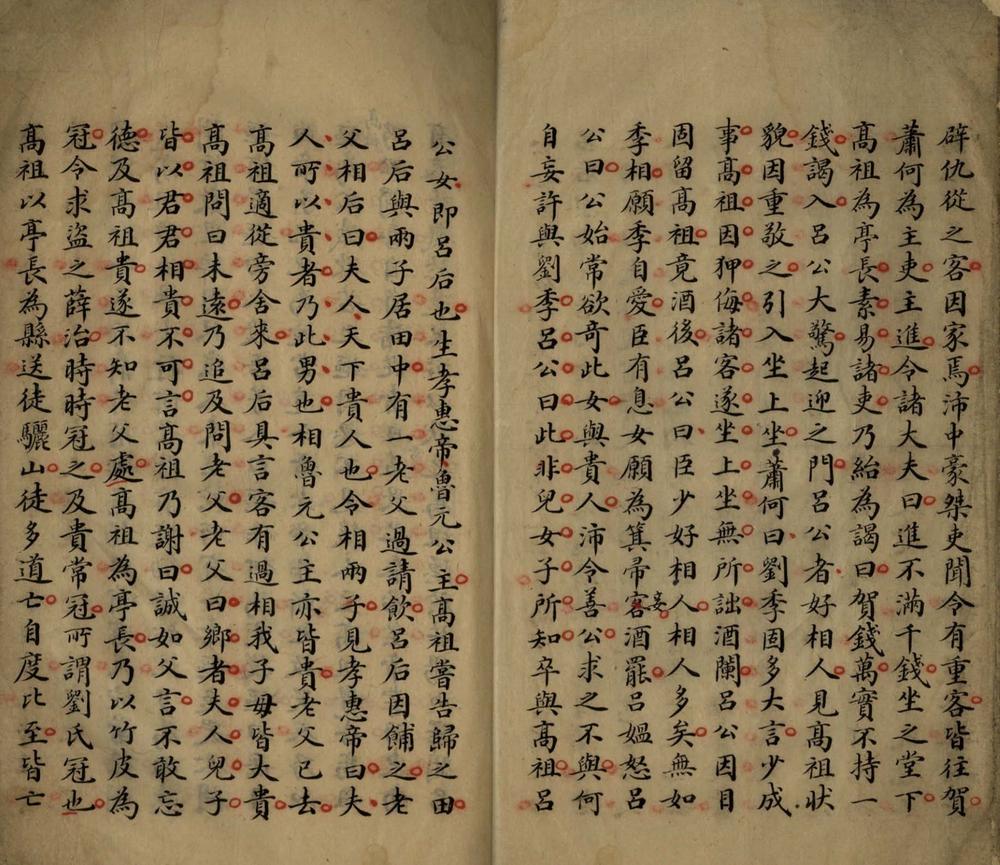 辟仇從之客因家焉沛中豪桀吏聞令有重客皆往賀
蕭何為主吏主進令諸大夫曰進不滿千錢坐之堂下
髙祖為亭長素易諸吏乃紿為謁曰賀錢萬實不持一
錢謁入呂公大驚起迎之門呂公者好相人見髙祖狀
貌因重敬之引入坐上坐蕭何曰劉季固多大言少成
事髙祖因狎侮諸客遂坐上坐無所詘酒闌呂公因目
固留髙祖竟酒後呂公曰臣少好相人相人多矣無如
季相願季自愛臣有息女願為箕帚妾客酒罷呂媼怒呂
公曰公始常欲奇此女與貴人沛令善公求之不與何
自妄許與劉季呂公曰此非兒女子所知卒與髙祖呂
公女即呂后也生孝惠帝魯元公主髙祖嘗告歸之田
呂后與兩子居田中有一老父過請飲呂后因餔之老
父相后曰夫人天下貴人也令相兩子見孝惠帝曰夫
人所以貴者乃此男也相魯元公主亦皆貴老父已去
髙祖適從旁舍來呂后具言客有過相我子母皆大貴
髙祖問曰未遠乃追及問老父老父曰鄉者夫人兒子
皆以君君相貴不可言髙祖乃謝曰誠如父言不敢忘
德及髙祖貴遂不知老父處髙祖為亭長乃以竹皮為
冠令求盜之薛治時時冠之及貴常冠所謂劉氏冠也
髙祖以亭長為縣送徒驪山徒多道亡自度比至皆亡